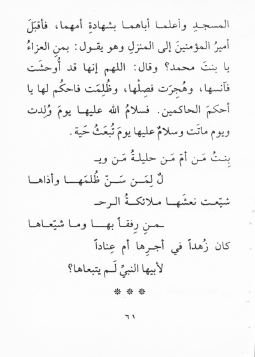 المسجد وأعلما أباهما بشهادةِ أمهما، فأقبَلَ
أميرُ المؤمنينَ إلى المنزلِ وهو يقول: بمنِ العزاءُ
يا بنتَ محمد؟ وقال: اللهم إنها قد أُوحشَت
فآنسها، وهُجِرَت فصِلْها، وظُلِمَت فاحكُم لها يا
أحكمَ الحاكمين. فسلامُ الله عليها يومَ وُلِدت
ويوم ماتَت وسلامٌ عليها يومَ تُبعَثُ حَية.
بِنتُ مَن أمّ مَن حليلةُ مَن ويـ
لٌ لِمَن سَنّ ظُلمَهــا وأذاها
شيّعت نعشَها ملائكةُ الرحـ
ـمنِ رِفقاً بهــا وما شيّعـاها
كان زُهداً في أجرِها أم عِناداً
لأبيها النبيِّ لَم يتبعاها؟
***
٦١